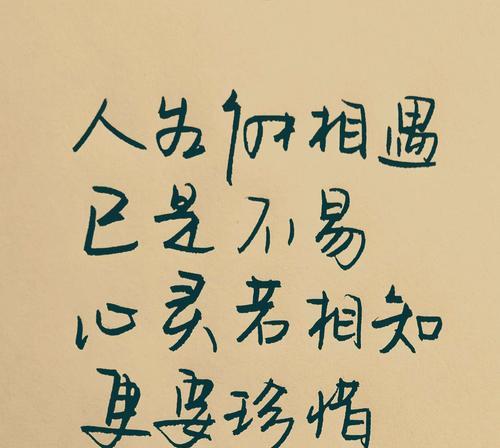 人相遇
已是不易
心灵若相知
更要珍惜